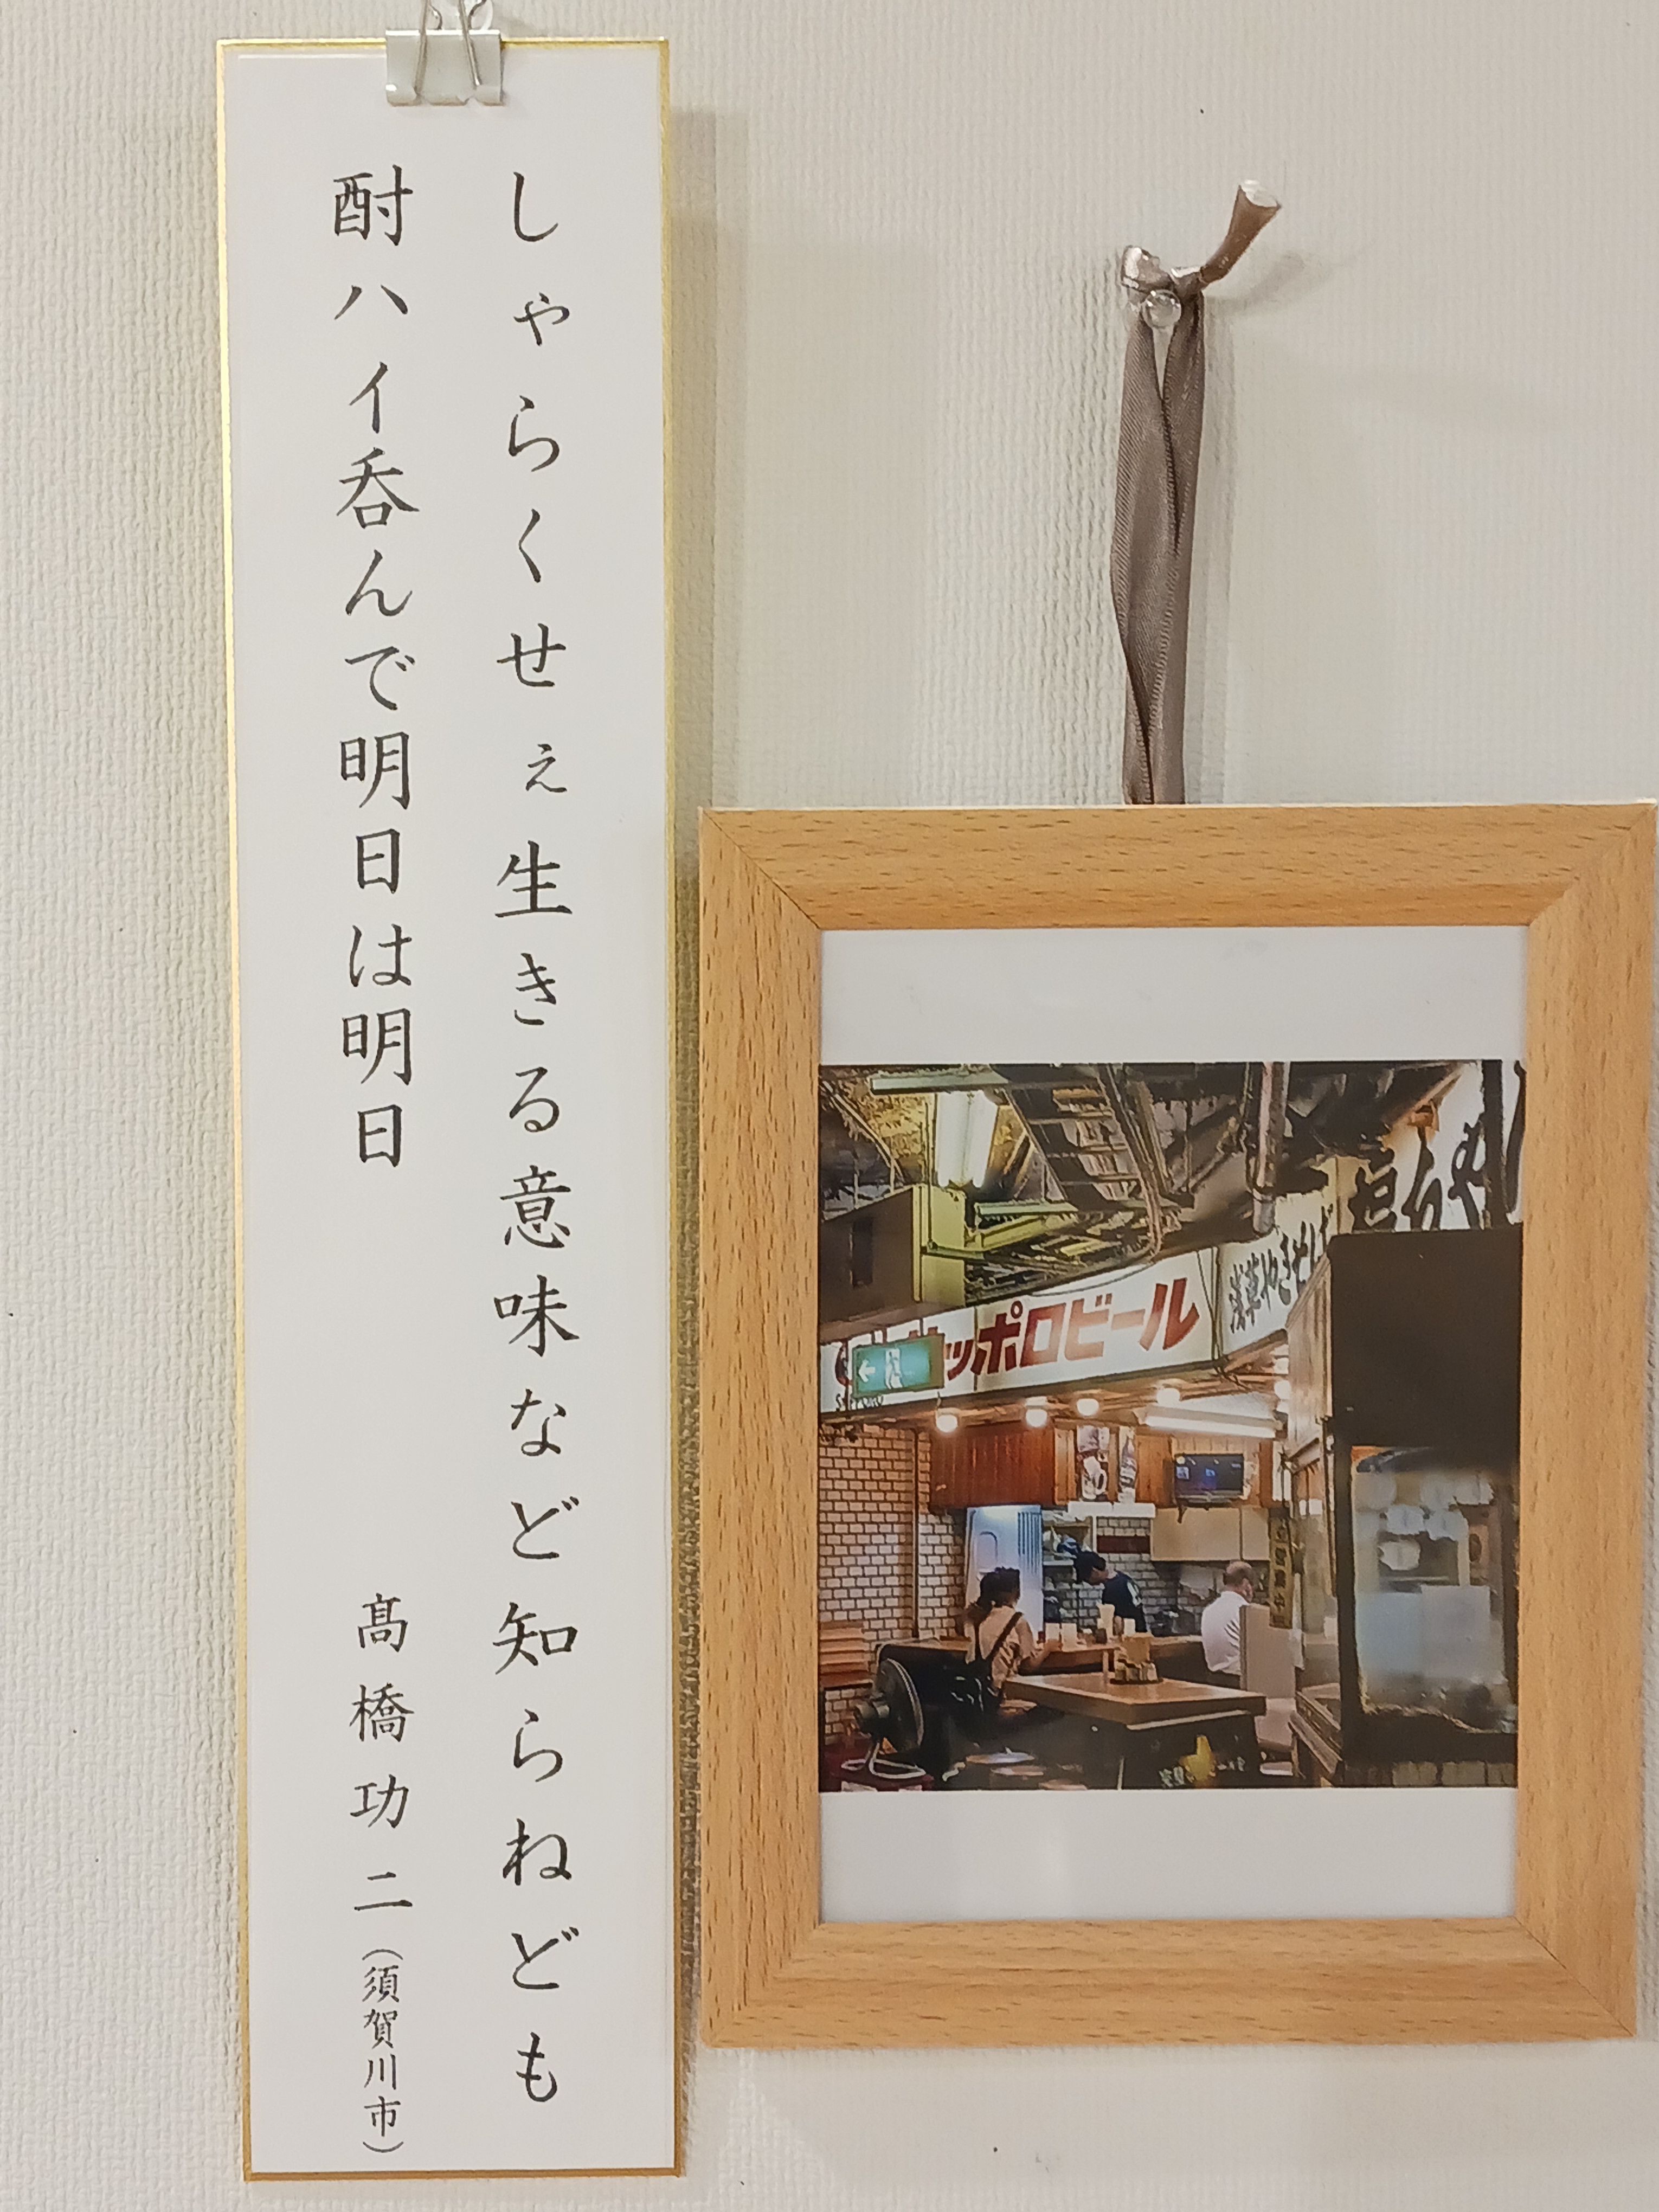 しゃらくせぇ生きる意味など知らねども
酎ハイ呑んで明日は明日
髙橋功二(須賀川市)
サッポロビール
SAPPORO
浅草やきそば